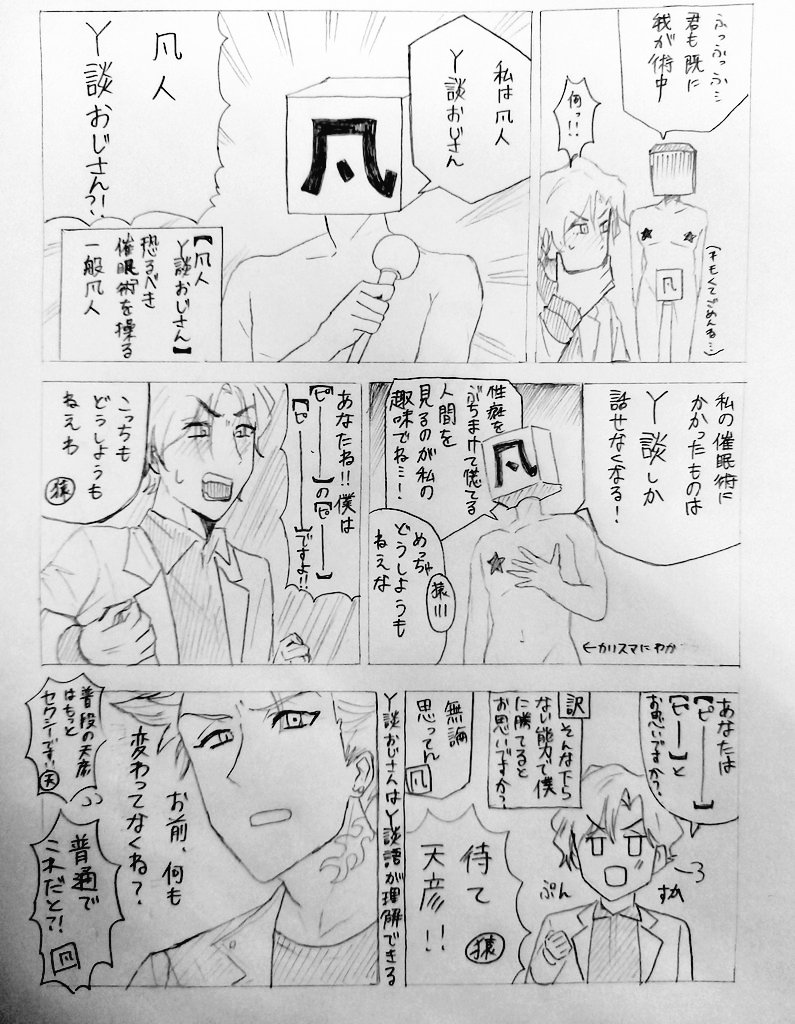 ふっふっふ…
君も既に
我が術中
何っ!!
凡
(キモくてごめんる…)
私は凡人
Y談おじさん
凡
凡人
Y談おじさん?!
【凡人
Y談おじさん】
恐るべき
催眠術を操る
一般凡人
私の催眠術に
かかったものは
Y談しか
話せなくなる!
性癖を
ぶちまけて慌てる
人間を
見るのが私の
趣味でね…!
凡
めっちゃ
どうしようも
ねえな
猿川
←カリスマにわか
あなたね!!僕は
【ピ――――】の【ピ――】
【ピ――――】ですよ!!
こっちも
どうしようも
ねえわ
猿
あなたは
【ピ――――】
【ピ――】と
お思いですか?
訳
そんな下ら
ない能力で僕
に勝てると
お思いですか?
無論
思ってん
凡
ぷん
すか
待て
天彦!!
猿
Y談おじさんはY談語が理解できる
お前、何も
変わってなくね?
普段の天彦
はもっと
セクシーです!!
天
普通で
コネだと?!
凡